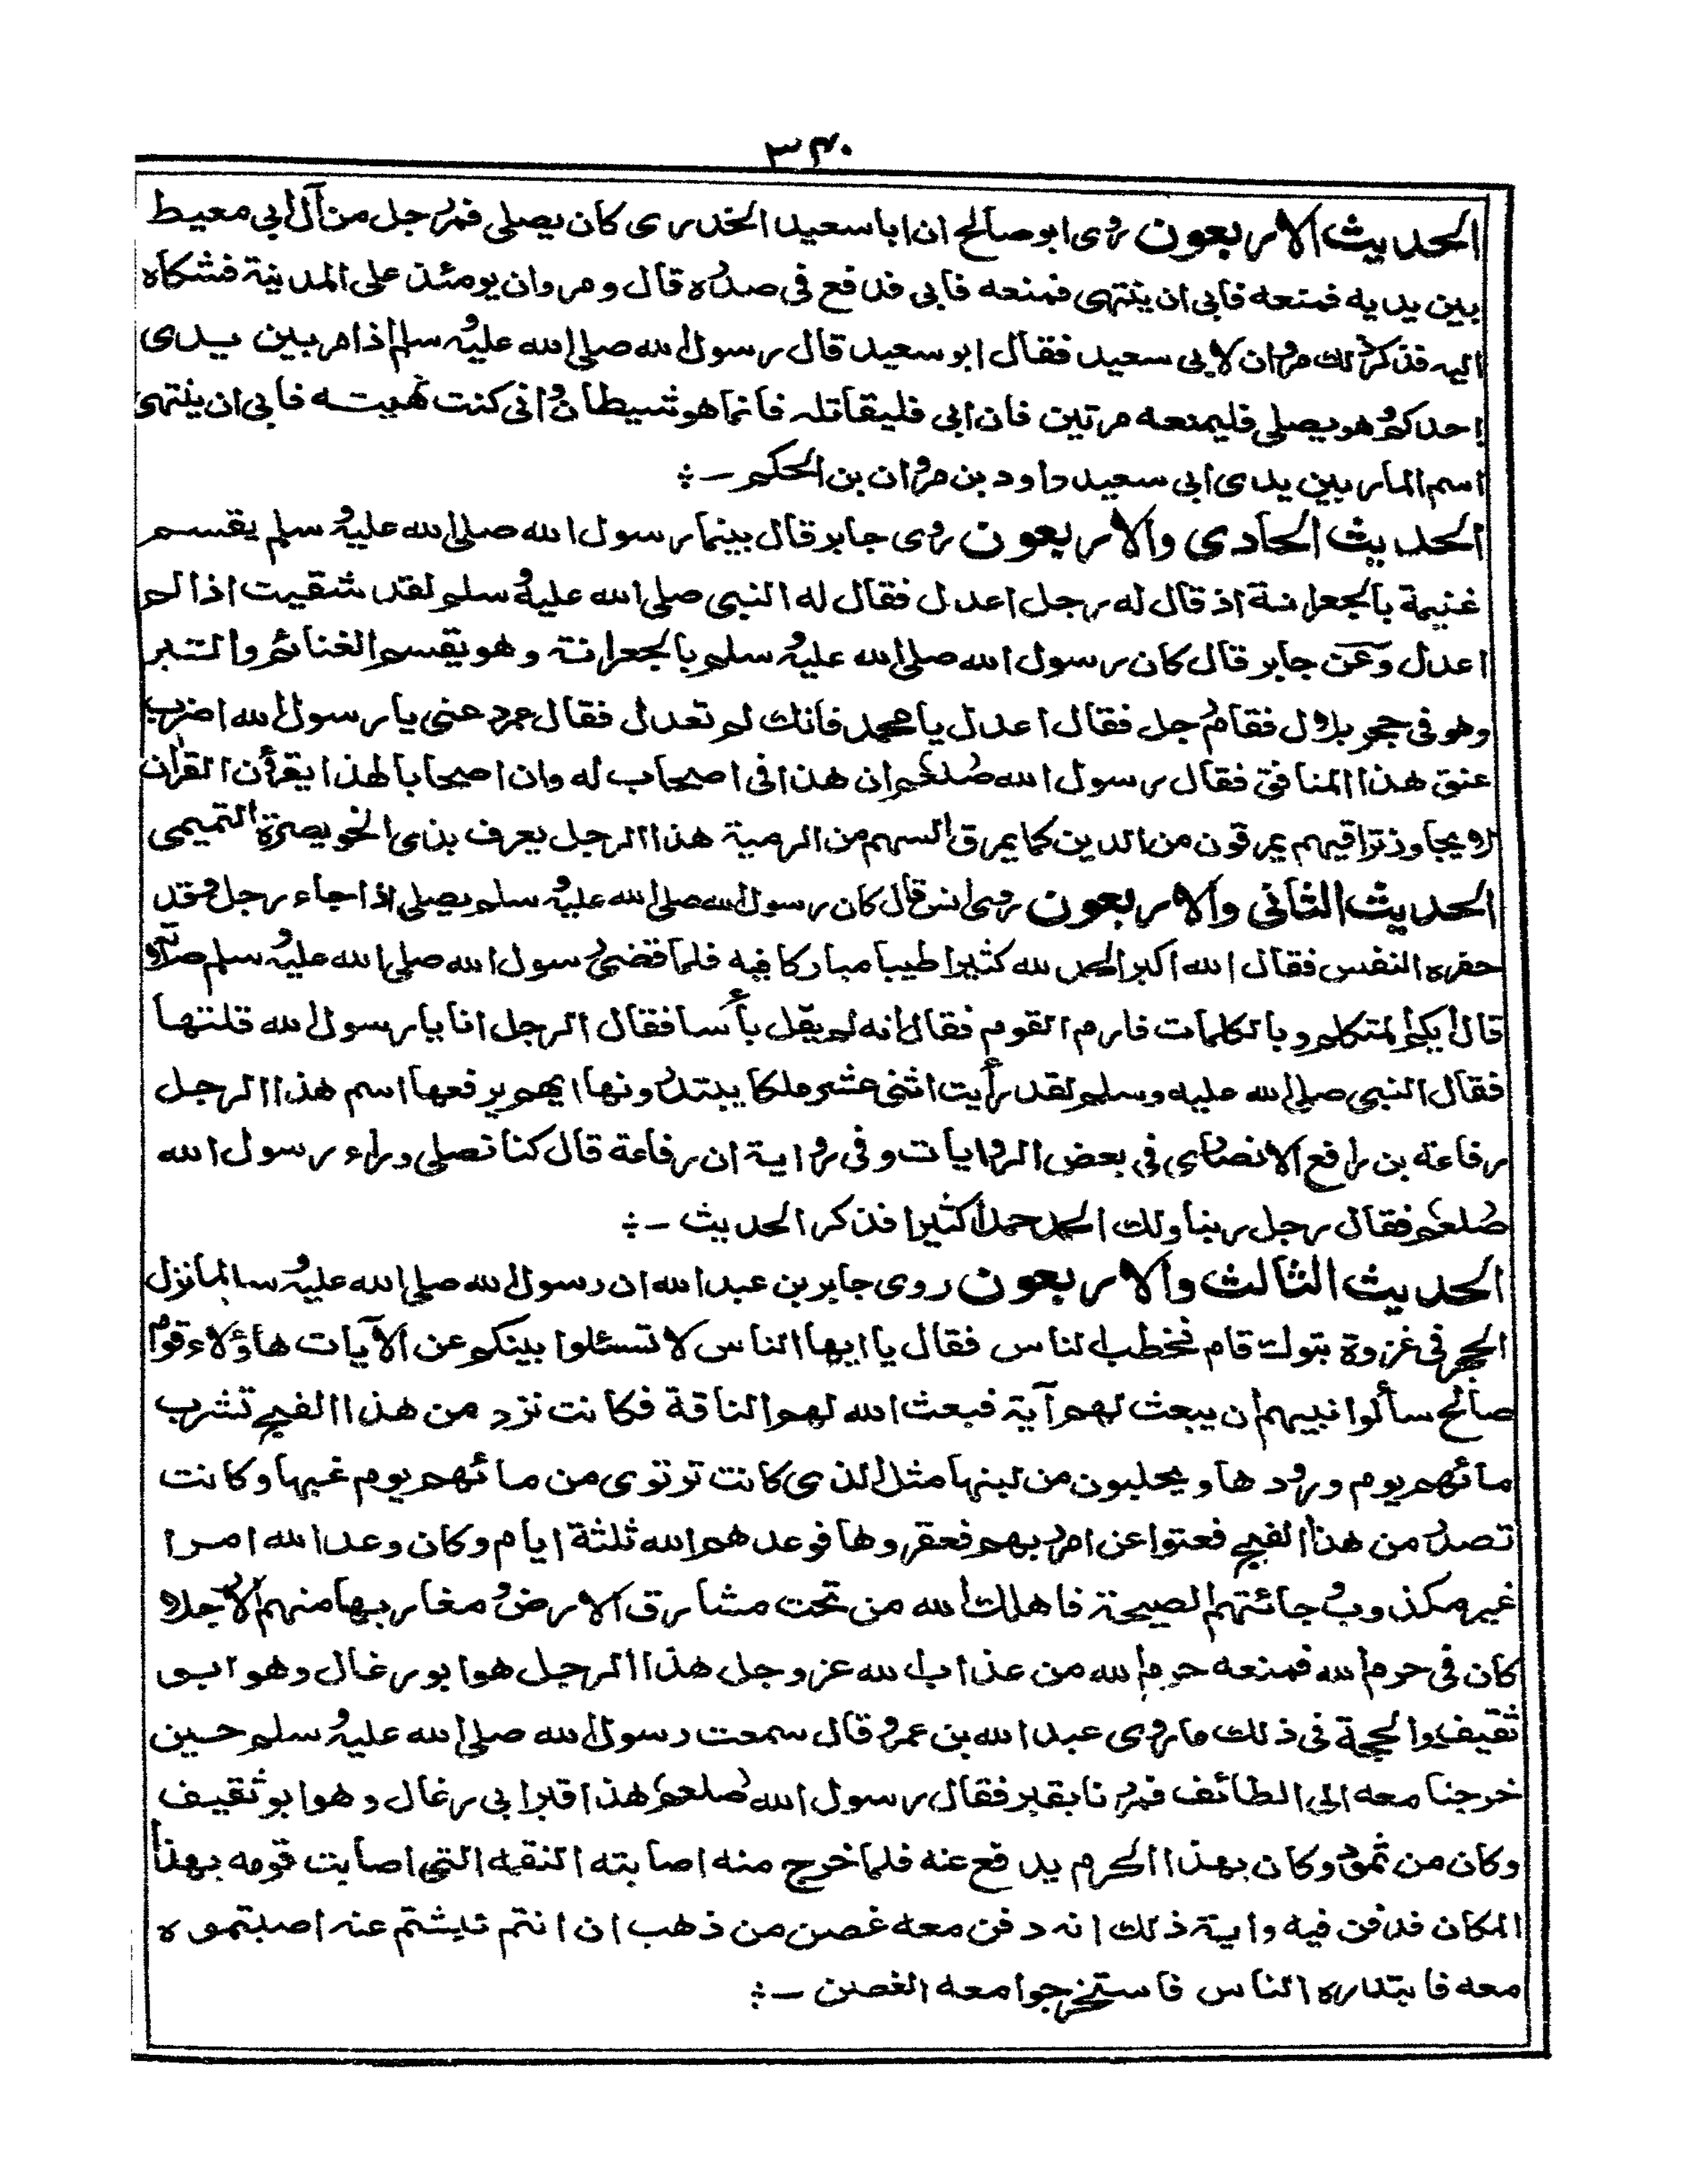 ٣٤٠
الحديث الاربعون روى ابو صالح ان ابا سعيد الخدرى كان يصلى فمر رجل من آل ابى معيط
بين يديه فمنعه فابى ان ينتهى فمنعه فابى فدفع فى صدره قال ومروان يومئذ على المدينة فشكاه
اليه فذكر ذلك مروان لابى سعيد فقال ابو سعيد قال رسول الله صلى الله عليه وسلم اذا مر بين يدى
احدكم وهو يصلى فليمنعه مرتين فان ابى فليقاتله فانما هو شيطان وانى كنت نهيته فابى ان ينتهى
اسم المار بين يدى ابى سعيد داود بن مروان بن الحكم -؞
الحديث الحادى والاربعون روى جابر قال بينما رسول الله صلى الله عليه وسلم يقسم
غنيمة بالجعرانة اذ قال له رجل اعدل فقال له النبى صلى الله عليه وسلم لقد شقيت اذا لم
اعدل وعن جابر قال كان رسول الله صلى الله عليه وسلم بالجعرانة وهو يقسم الغنائم والتبر
وهو فى حجر بلال فقام رجل فقال اعدل يا محمد فانك لم تعدل فقال عمر دعنى يا رسول الله اضرب
عنق هذا المنافق فقال رسول الله صلعم ان هذا فى اصحاب له وان اصحابا لهذا يقرأن القرآن
لا يجاوز تراقيهم يمرقون من الدين كما يمرق السهم من الرمية هذا الرجل يعرف بذى الخويصرة التميمى
الحديث الثانى والاربعون روى انس قال كان رسول الله صلى الله عليه وسلم يصلى اذا جاء رجل وقد
حفزه النفس فقال الله اكبر الحمد لله كثيرا طيبا مباركا فيه فلما قضى رسول الله صلى الله عليه وسلم صلاته
قال ايكم المتكلم وبالكلمات فارم القوم فقال انه لم يقل بأسا فقال الرجل انا يا رسول الله قلتها
فقال النبى صلى الله عليه وسلم لقد رأيت اثنى عشر ملكا يبتدرونها ايهم يرفعها اسم هذا الرجل
رفاعة بن رافع الانصارى فى بعض الروايات وفى رواية ان رفاعة قال كنا نصلى وراء رسول الله
صلعم فقال رجل ربنا ولك الحمد حمدا كثيرا فذكر الحديث -؞
الحديث الثالث والاربعون روى جابر بن عبد الله ان رسول الله صلى الله عليه وسلم لما نزل
الحجر فى غزوة تبوك قام فخطب الناس فقال يا ايها الناس لا تسئلوا بينكم عن الآيات هاؤلاء قوم
صالح سألوا نبيهم ان يبعث لهم آية فبعث الله لهم الناقة فكانت ترد من هذا الفج تشرب
مائهم يوم ورودها ويحلبون من لبنها مثل الذى كانت ترتوى من مائهم يوم غبها وكانت
تصدر من هذا الفج فعتوا عن امر ربهم فعقروها فوعدهم الله ثلثة ايام وكان وعد الله امرا
غير مكذوب وجائتهم الصيحة فاهلك الله من تحت مشارق الارض ومغاربها منهم الا رجلا
كان فى حرم الله فمنعه حرم الله من عذاب الله عز وجل هذا الرجل هو ابو رغال وهو ابو
ثقيف والحجة فى ذلك ما روى عبد الله بن عمرو قال سمعت رسول الله صلى الله عليه وسلم حين
خرجنا معه الى الطائف فمررنا بقبر فقال رسول الله صلعم هذا قبر ابى رغال وهو ابو ثقيف
وكان من ثمود وكان بهذا الحرم يدفع عنه فلما خرج منه اصابته النقمه التى اصابت قومه بهذا
المكان فدفن فيه واية ذلك انه دفن معه غصن من ذهب ان انتم نبشتم عنه اصبتموه
معه فابتدره الناس فاستخرجوا معه الغصن -؞